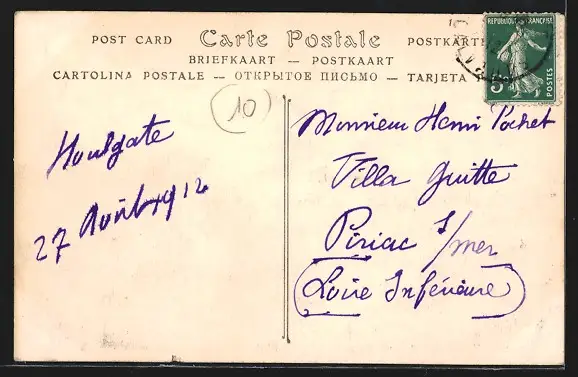 POST CARD Carte Postale POSTKARTE
BRIEFKAART — POSTKAART
CARTOLINA POSTALE — ОТКРЫТОЕ ПИСЬМО — TARJETA
REPUBLIQUE FRANÇAISE
5c
POSTES
10
Houlgate
27 Août 1912
Monsieur Henri Pochet
Villa Guitte
Piriac s/mer
Loire Inférieure